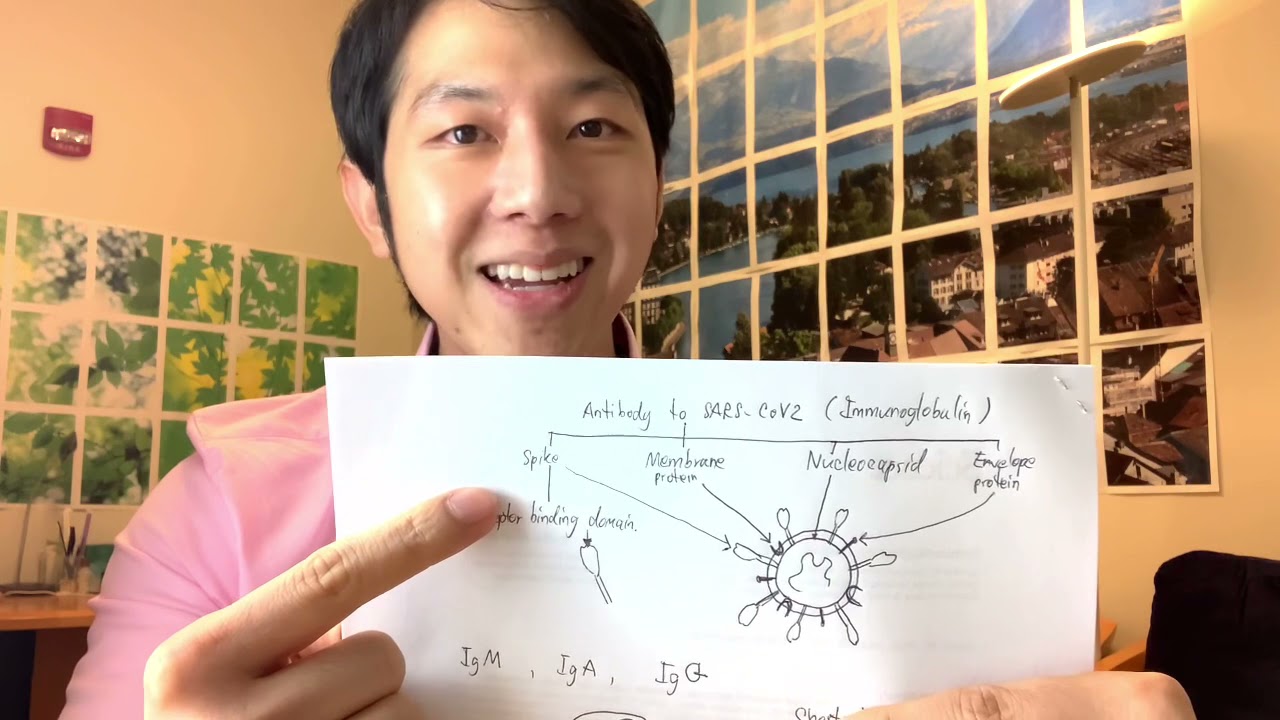 Antibody to SARS-CoV2 (Immunoglobulin)
Spike Membrane protein Nucleocapsid Envelope protein
binding domain.
IgM, IgA, IgG